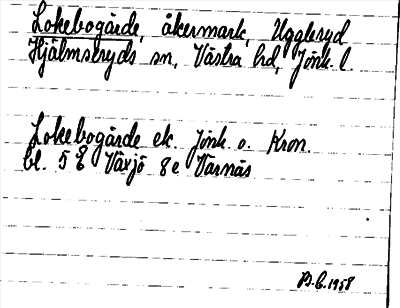 Lokebogärde, åkermark, Uggleryd
Hjälmseryds sn, Västra hd, Jönk. l.
Lokebogärde ek. Jönk. o. Kron.
bl. 5 E Växjö 8e Värnäs
B.G. 1958